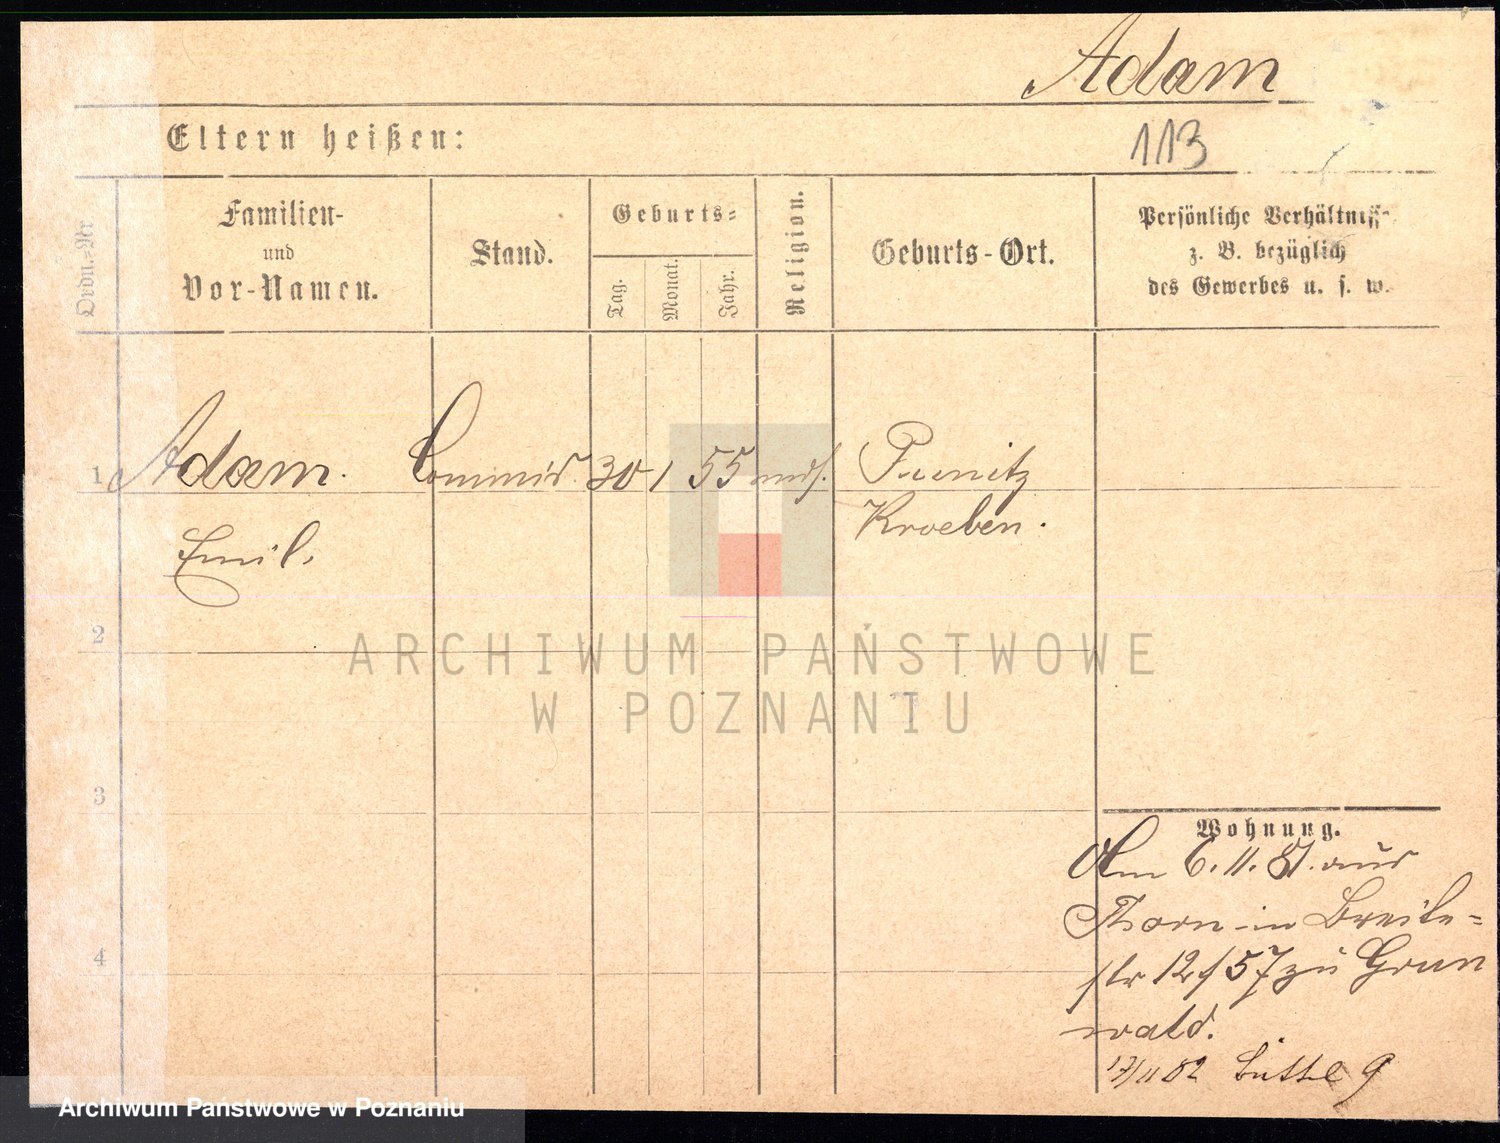 Adam
Eltern heißen:
113
Ordn.-Nr
Familien-
und
Vor-Namen.
Stand.
Geburts-
Tag.
Monat.
Jahr.
Religion.
Geburts-Ort.
Persönliche Verhältniss
z. B. bezüglich
des Gewerbes u. s. w.
1 Adam. Commis. 30 1 55 Punitz
Kroeben.
Emil.
2
ARCHIWUM PAŃSTWOWE
W POZNANIU
3
Wohnung.
Am 6. 11. 81. aus
Thorn in Breite-
4
str 12/57 zu Grun
wald.
17/11 82 9
Archiwum Państwowe w Poznaniu